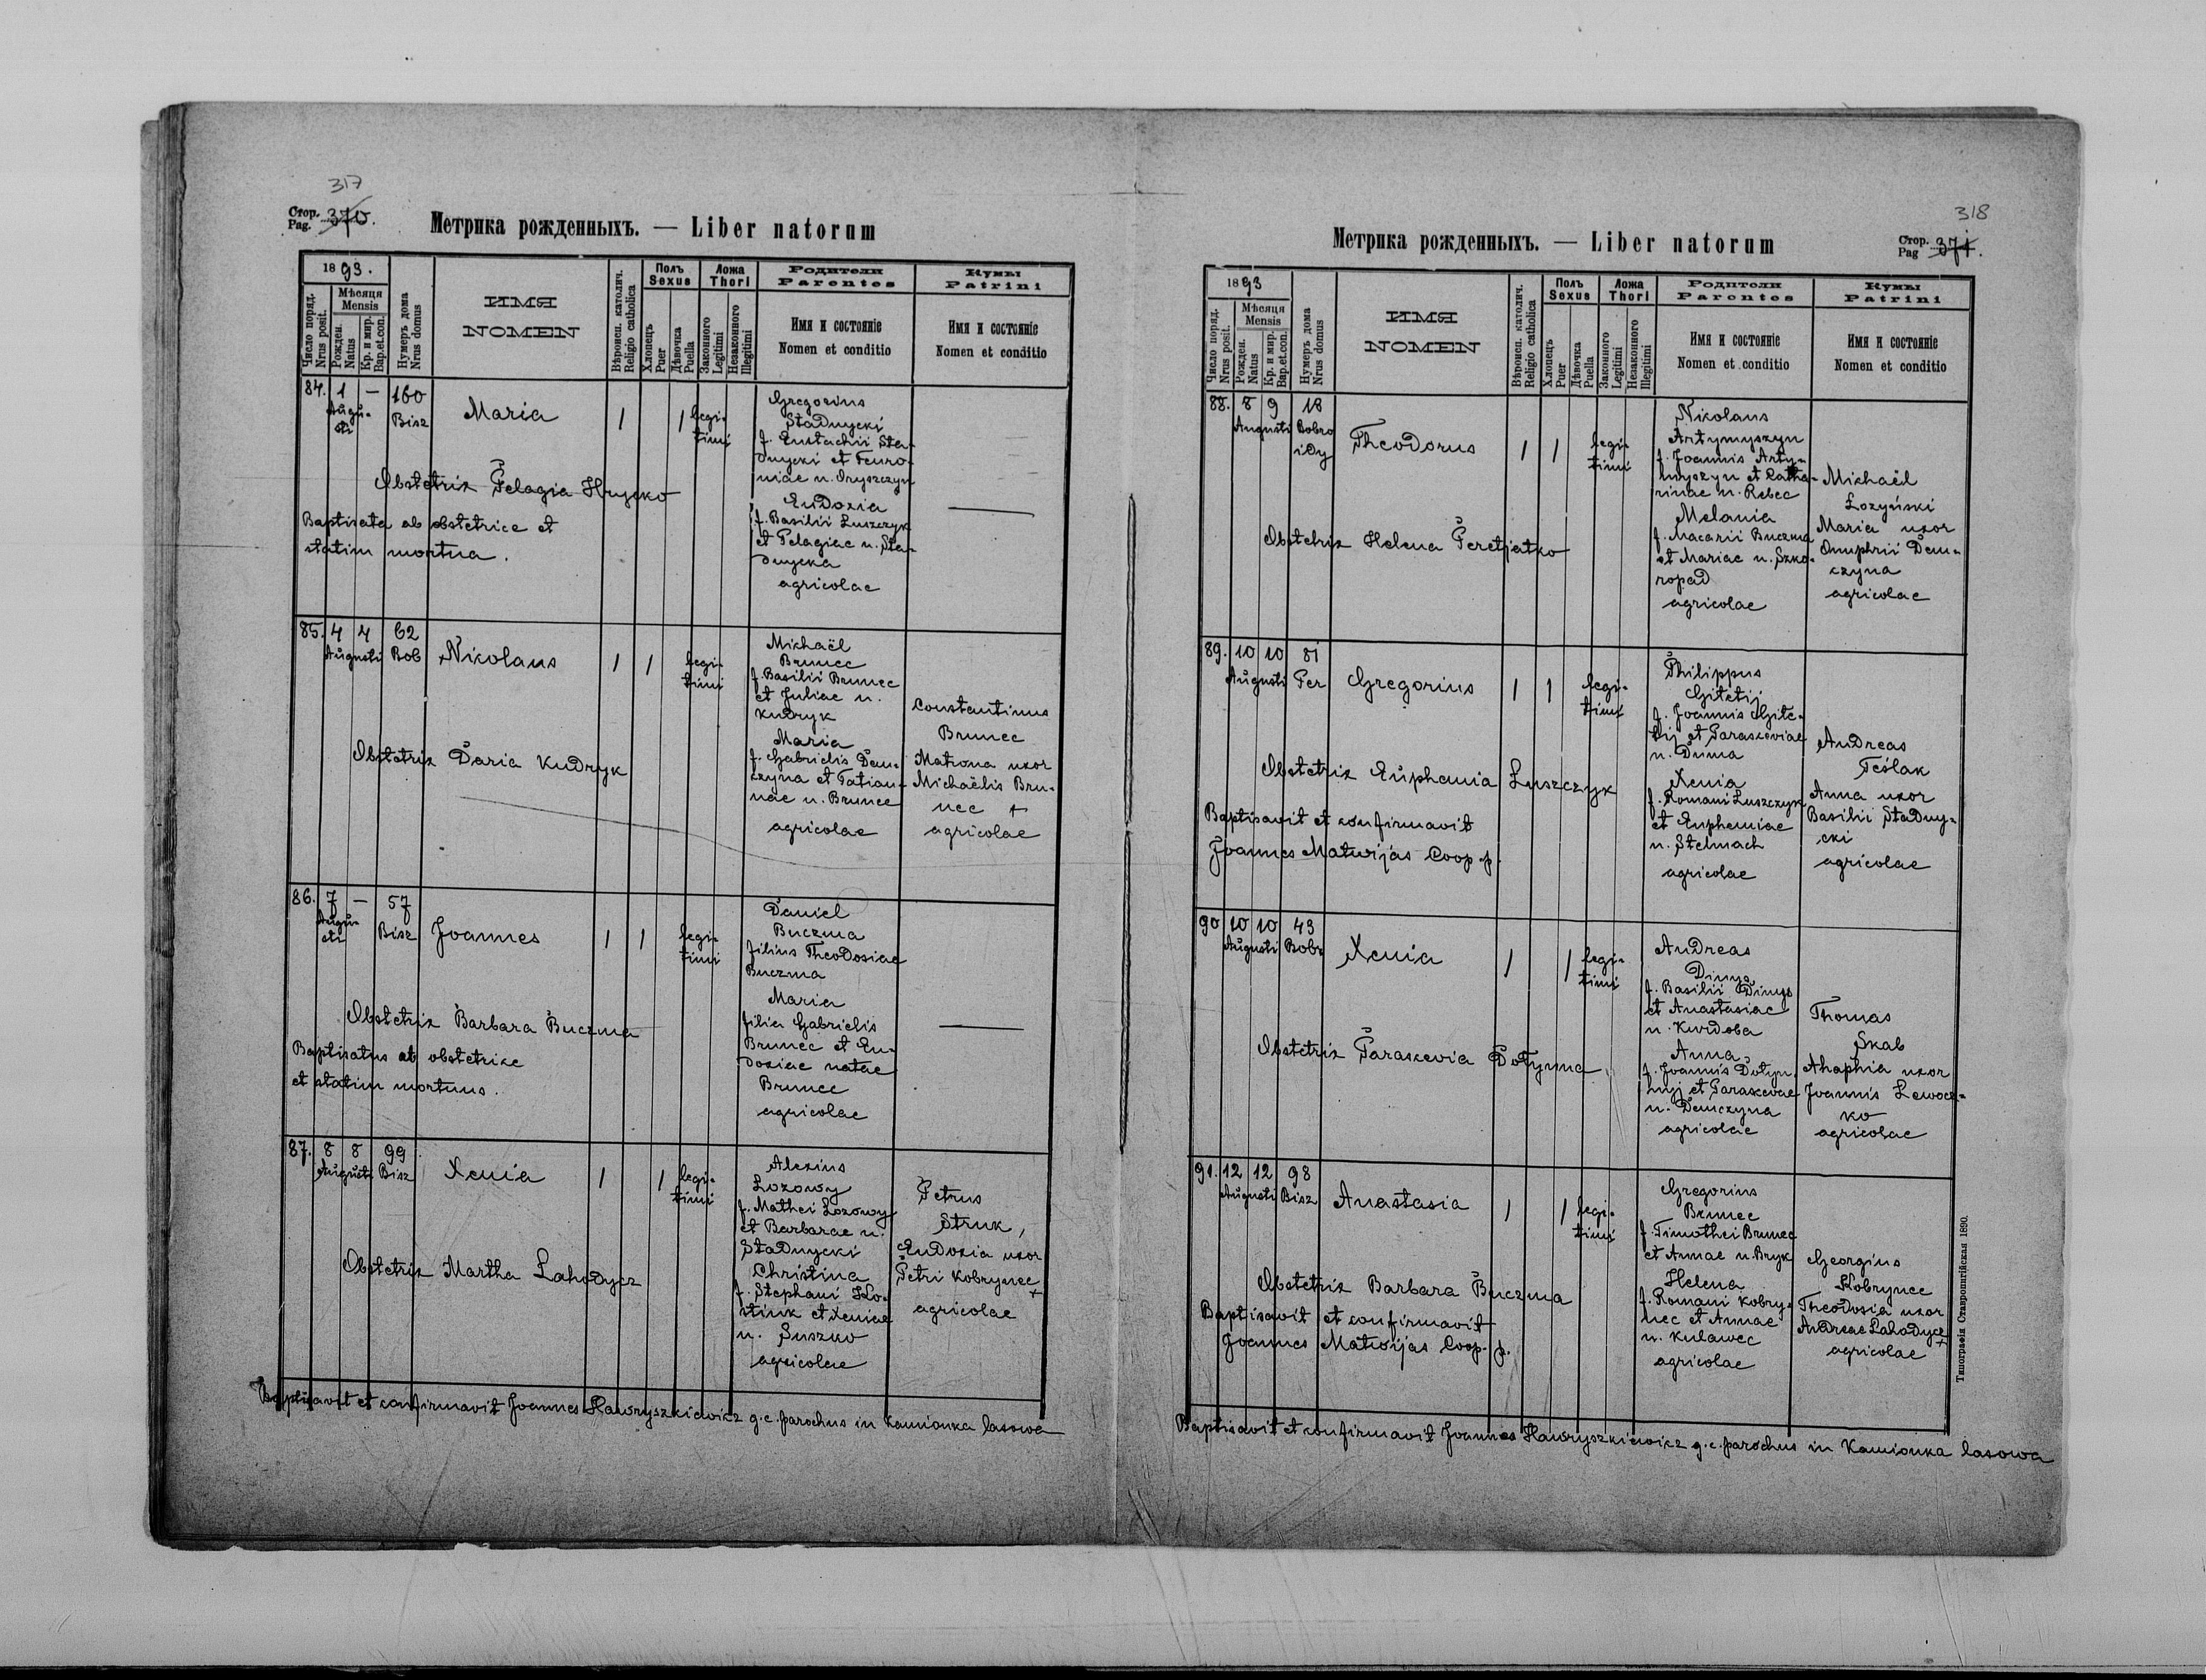 317
Стор. Pag. 370.
Метрика рожденныхъ. — Liber natorum
1893.
Число поряд. Nrus posit.
Мѣсяця Mensis
Рожден. Natus
Кр. и мир. Bap. et con.
Нумеръ дома Nrus domus
ИМЯ
NOMEN
Вѣроисп. католич. Religio catholica
Полъ Sexus
Хлопецъ Puer
Дѣвочка Puella
Ложа Thori
Законного Legitimi
Незаконного Illegitimi
Родители Parentes
Имя и состояніе
Nomen et conditio
Кумы Patrini
Имя и состояніе
Nomen et conditio
84. 1 — 160
Augu-
sti
Bisz
Maria
1 1 legi-
timi
Gregorius
Stadnycki
f. Eustachii Sta-
dnycki et Feuro-
niae n. Oryszczyn
Eudoxia
f. Basilii Luszczyk
et Pelagiae n. Sta-
dnycka
agricolae
Obstetrix Pelagia Hrycko
Baptisata ab obstetrice et
statim mortua.
85. 4 4 62
Augusti Bob
Nikolaus
1 1 legi-
timi
Michaël
Brunec
f. Basilii Brunec
et Juliae n.
Kudryk
Maria
f. Gabrielis Dem-
czyna et Tatian-
nae n. Brunec
agricolae
Constantinus
Brunec
Matrona uxor
Michaëlis Bru-
nec +
agricolae
Obstetrix Daria Kudryk
86. 7 — 57
Augu-
sti
Bisz
Joannes
1 1 legi-
timi
Daniel
Buczma
filius Theodosiae
Buczma
Maria
filia Gabrielis
Brunec et Eu-
doxiae natae
Brunec
agricolae
Obstetrix Barbara Buczma
Baptisatus ab obstetrice
et statim mortuus.
87. 8 8 99
Augusti Bisz
Xenia
1 1 legi-
timi
Alexius
Lozowy
f. Mathei Lozowy
et Barbarae n.
Stadnycki
Christina
f. Stephani Ko-
stiuk et Xeniae
n. Suszko
agricolae
Petrus
Struk,
Eudoxia uxor
Petri Kobrynec
+
agricolae
Obstetrix Martha Lahodycz
Baptisavit et confirmavit Joannes Hawryszkiewicz g. c. parochus in Kamionka lasowa
318
Стор. Pag 371.
Метрика рожденныхъ. — Liber natorum
1893
Число поряд. Nrus posit.
Мѣсяця Mensis
Рожден. Natus
Кр. и мир. Bap. et con.
Нумеръ дома Nrus domus
ИМЯ
NOMEN
Вѣроисп. католич. Religio catholica
Полъ Sexus
Хлопецъ Puer
Дѣвочка Puella
Ложа Thori
Законного Legitimi
Незаконного Illegitimi
Родители Parentes
Имя и состояніе
Nomen et conditio
Кумы Patrini
Имя и состояніе
Nomen et conditio
88. 8 9 18
Augusti Bobro
idy
Theodorus
1 1 legi-
timi
Nikolaus
Artymyszyn
f. Joannis Arty-
myszyn et Catha-
rinae n. Rebec
Melania
f. Macarii Buczma
et Mariae n. Szko-
ropad
agricolae
Michaël
Łozyński
Maria uxor
Onuphrii Dem-
czyna
agricolae
Obstetrix Helena Peretjatko
89. 10 10 81
Augusti Per
Gregorius
1 1 legi-
timi
Philippus
Gitetij
f. Joannis Gite-
tij et Paraskeviae
n. Duma
Xenia
f. Romani Luszczyk
et Euphemiae
n. Stelmach
agricolae
Andreas
Teślak
Anna uxor
Basilii Stadny-
cki
agricolae
Obstetrix Euphemia Luszczyk
Baptisavit et confirmavit
Joannes Matwijas Coop. p.
90 10 10 43
Augusti Bobr
Xenia
1 1 legi-
timi
Andreas
Dinys
f. Basilii Dinys
et Anastasiae
n. Kurdoba
Anna
f. Joannis Dotyn-
nyj et Paraskevae
n. Demczyna
agricolae
Thomas
Skab
Ahaphia uxor
Joannis Lewocz-
ko
agricolae
Obstetrix Paraskevia Dotynna
91. 12 12 98
Augusti Bisz
Anastasia
1 1 legi-
timi
Gregorius
Brunec
f. Timothei Brunec
et Annae n. Bryk
Helena
f. Romani Kobry-
nec et Annae
n. Kulawec
agricolae
Georgius
Kobrynec
Theodosia uxor
Andreae Lahodycz
+
agricolae
Obstetrix Barbara Buczma
Baptisavit et confirmavit
Joannes Matwijas Coop. p.
Baptisavit et confirmavit Joannes Hawryszkiewicz g. c. parochus in Kamionka lasowa
Типографія Ставропигійская 1890.